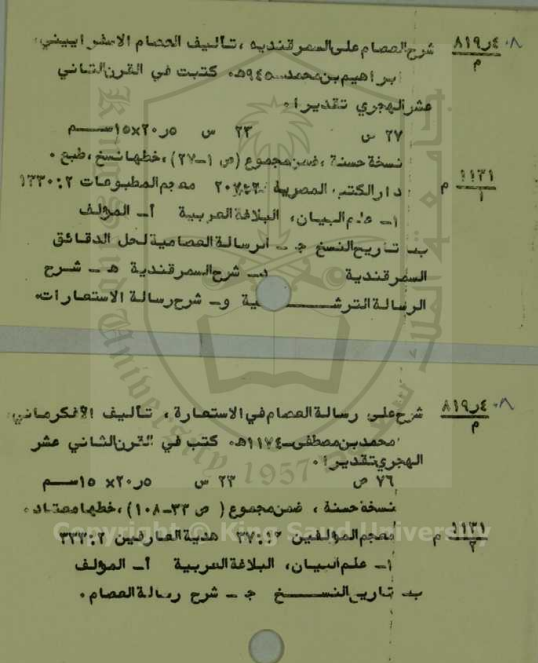 ٤ر٨١٩ ٠٨
م
شرح العصام على السمرقنديه ، تأليف العصام الاسفراييني،
ابراهيم بن محمد - ٩٤٥هـ. كتبت في القرن الثاني
عشر الهجري تقديرا.
٢٧ س ٢٣ س ٥ر٢٠×١٥ســم
نسخة حسنة ، ضمن مجموع (ص ١-٢٧) ، خطها نسخ ، طبع .
١١٣١ م
١
دار الكتب المصرية ٢٠٧:٢ معجم المطبوعات ١٣٣٠:٢
١- علم البيان، البلاغة العربية أ- المؤلف
ب- تاريخ النسخ ج - الرسالة العصامية لحل الدقائق
السمرقندية د- شرح السمرقندية هـ - شرح
الرسالة الترشــية و- شرح رسالة الاستعارات.
٤ر٨١٩ ٠٨
م
شرح على رسالة العصام في الاستعارة ، تأليف الآفكرماني،
محمد بن مصطفى - ١١٧٤هـ. كتب في القرن الثاني عشر
الهجري تقديرا.
٧٦ ص ٢٣ س ٥ر٢٠× ١٥ســم
نسخة حسنة ، ضمن مجموع ( ص ٣٣-١٠٨) ، خطها معتاد .
١١٣١ م
٢
معجم المؤلفين ٣٧:١٢ هدية العارفين ٣٣٣:٢
١- علم البيان، البلاغة العربية أ- المؤلف
ب- تاريخ النســـخ ج - شرح رسالة العصام .
King Saud University
1957
Copyright © King Saud University